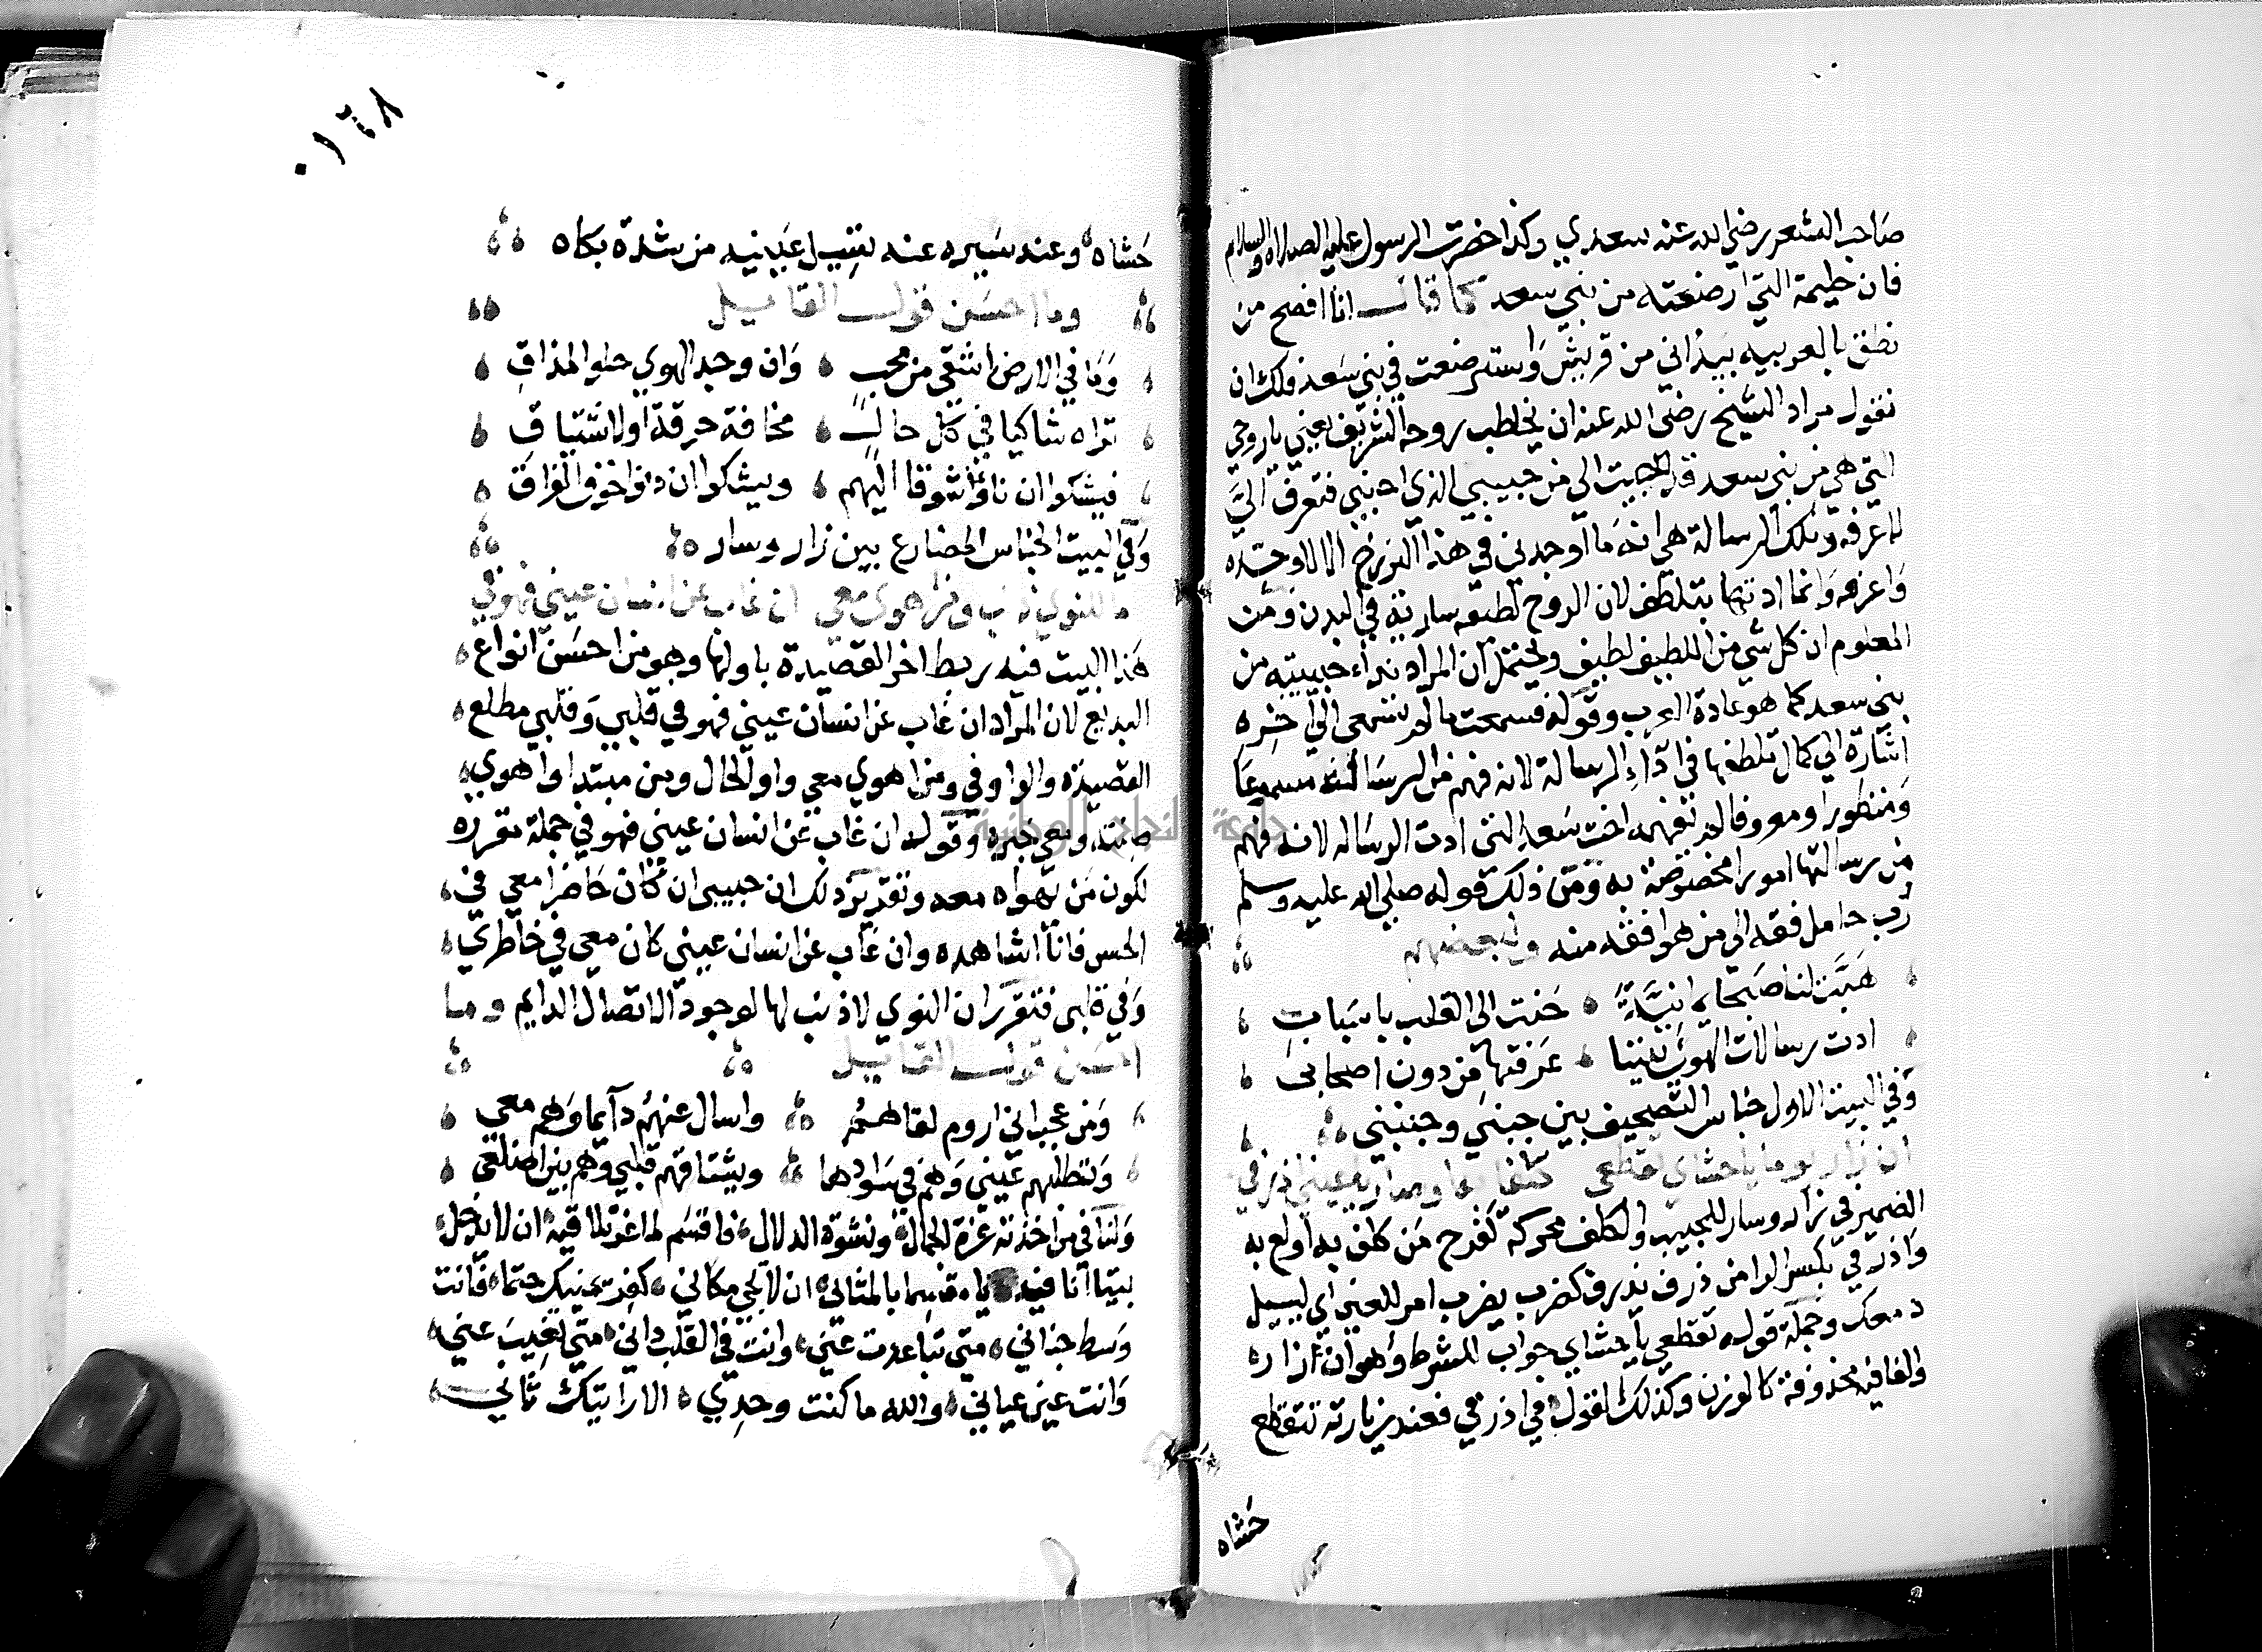 صاحب الشعر رضي الله عنه سعدي وكذا حضرت الرسول عليه الصلاة والسلام
فان حليمة التي ارضعته من بني سعد كما قال انا افصح من
نطق بالعربيه بيد اني من قريش واسترضعت في بني سعد فلك ان
نقول مراد الشيخ رضي الله عنه ان يخاطب روحه الشريف يعني يا روحي
التي هي من بني سعد قد جيت الي من حبيبي الذي احبني فتعرف الي
لاعرفه وتلك الرسالة هي انه ما اوجدني في هذا البرزخ الا لاوحده
واعرفه وانما ادتها بتلطف لان الروح لطيفه سارية في البدن ومن
المعلوم ان كل شي من اللطيف لطيف ويحتمل ان المراد نداء حبيبته من
بني سعد كما هو عادة العرب وقوله فسمعت ما لم تسمعي الي اخره
اشارة الي كمال تلطفها في اداء الرسالة لانه فهم من الرسالة مسموعا
ومنظورا ومعروفا لم تفهمه اخت سعد التي ادت الرساله لانه فهم
من رسالتها امورا مخصوصة به ومن ذلك قوله صلي الله عليه وسلم
رب حامل فقه الي من هو افقه منه ولبعضهم
هبت لنا صبحا يمانية حنت الي القلب باسباب
ادت رسالات الهوي بيننا عرفتها من دون اصحابي
وفي البيت الاول جناس التصحيف بين جبتني وجنبتني
ان زار يوما يا حشاي تقطعي كلفا به او سار يا عيني اذرفي
الضمير في زار وسار للحبيب والكلف محركة كفرح من كلف به اولع به
واذرفي بكسر الرا من ذرف يذرف كضرب يضرب امر للعين اي ليسيل
دمعك وجملة قوله تقطعي يا حشاي جواب الشرط وهو ان زاره
والفا فيه محذوفة كالوزن وكذلك نقول في اذرفي فعند زيارته تتقطع
حشاه
٠١٣٨
حشاه وعند سيره عنه تسيل عينيه من شدة بكاه
وما احسن قول القايل
وما في الارض اشقي من محب وان وجد الهوي حلو المذاق
تراه شاكيا في كل حال مخافة حرقة او لاشتياق
فيشكوا ان ناوا شوقا اليهم ويشكوا ان دنوا خوف الفراق
وفي البيت الجناس المضارع بين زار وسار
ما للنوي ذنب ومن اهوي معي ان غاب عن انسان عيني فهو في
هذا البيت فيه ربط اخر القصيدة باولها وهو من احسن انواع
البديع لان المراد ان غاب عن انسان عيني فهو في قلبي وقلبي مطلع
القصيدة والواو في ومن اهوي معي واو الحال ومن مبتدا واهوي
صفته ومعي خبره وقوله ان غاب عن انسان عيني فهو في جملة مقرره
لكون من يهواه معه وتقدير ذلك ان حبيبي ان كان حاضرا معي في
الحس فانا اشاهده وان غاب عن انسان عيني كان معي في خاطري
وفي قلبي فتقرر ان النوي لا ذنب لها لوجود الاتصال الدايم وما
احسن قول القايل
ومن عجب اني اروم لقاهم واسال عنهم دآيما وهم معي
وتطلبهم عيني وهم في سوادها ويشتاقهم قلبي وهم بين اضلعي
ولنا في من اخذته عزة الجمال ونشوة الدلال فاقسم لما عز تلاقيه ان لا يدخل
بيتا انا فيه يا مقسما بالمثاني ان لا يجي مكاني كفر يمينك حتما فانت
وسط جناني متي تباعدت عني وانت في القلب داني متي تغيب عني
وانت عين عياني والله ما كنت وحدي الا رايتك ثاني